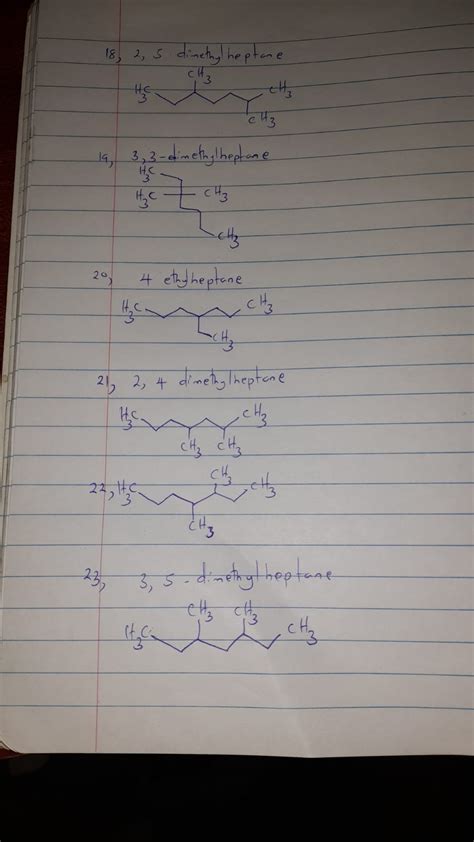 18, 2, 5 dimethylheptane
CH3
H3C CH3
CH3
19, 3,3-dimethylheptane
H3C
H3C CH3
CH3
20, 4 ethylheptane
H3C CH3
CH3
21, 2, 4 dimethylheptane
H3C CH3
CH3 CH3
CH3
22, H3C CH3
CH3
23, 3, 5-dimethylheptane
CH3 CH3
H3C CH3